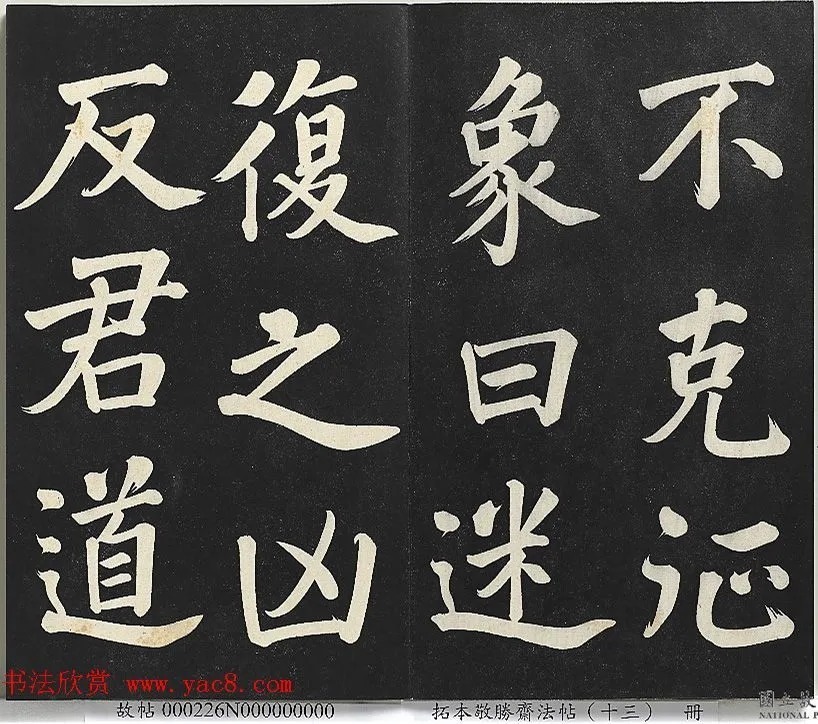 不克征
象曰迷
復之凶
反君道
书法欣赏 www.yac8.com
故帖 000226N000000000
拓本敬勝齋法帖（十三） 册